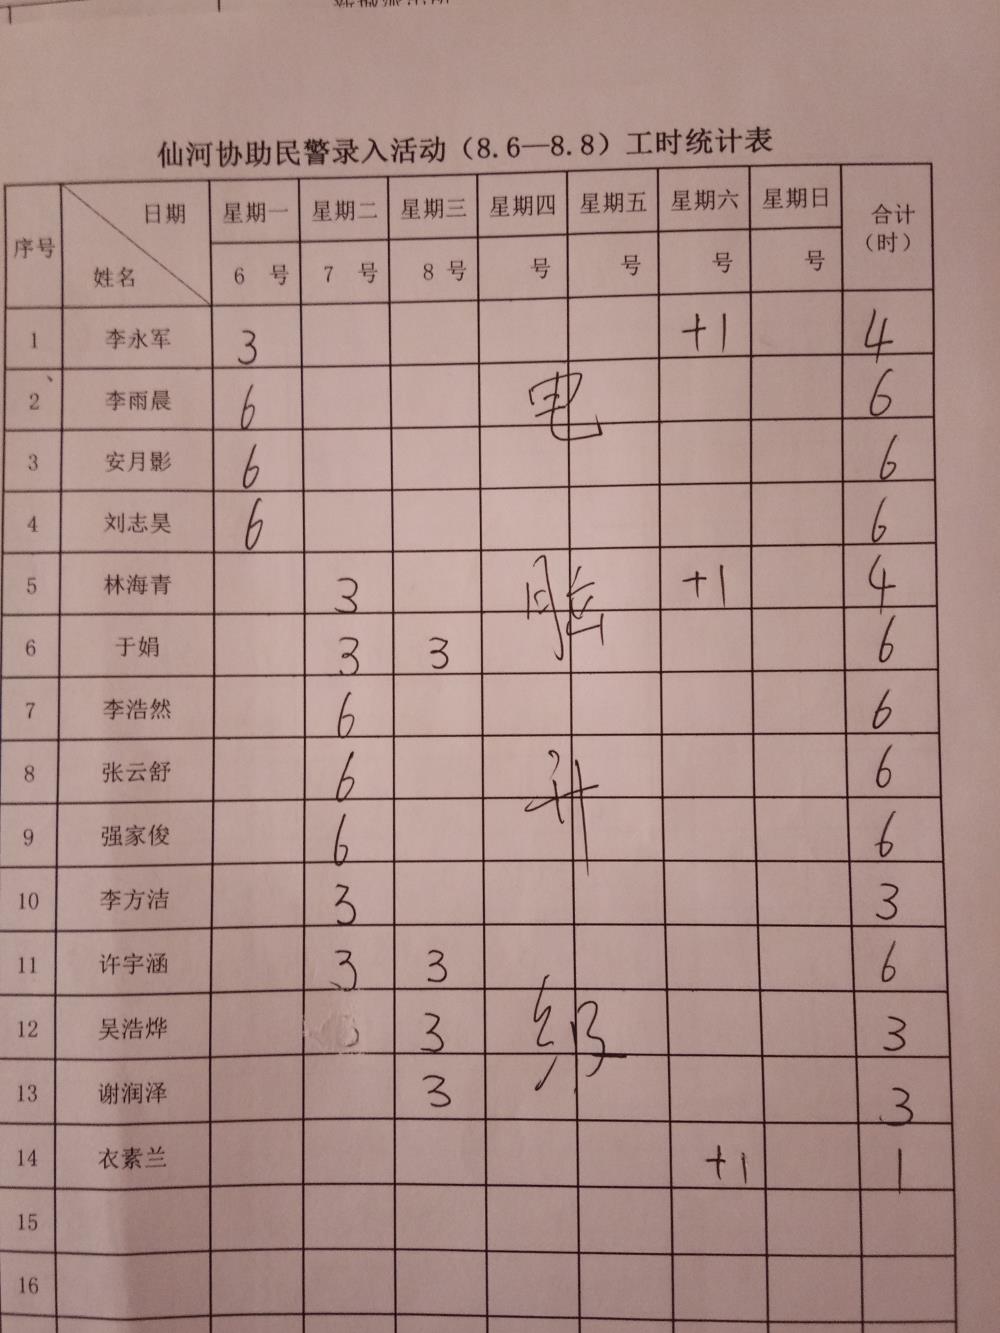 仙河协助民警录入活动（8.6—8.8）工时统计表
序号 日期 姓名 星期一 星期二 星期三 星期四 星期五 星期六 星期日 合计（时）
6 号 7 号 8 号 号 号 号 号
1 李永军 3 +1 4
2 李雨晨 6 电 6
3 安月影 6 6
4 刘志昊 6 6
5 林海青 3 脑 +1 4
6 于娟 3 3 6
7 李浩然 6 6
8 张云舒 6 计 6
9 强家俊 6 6
10 李方洁 3 3
11 许宇涵 3 3 6
12 吴浩烨 3 3
13 谢润泽 3 3
14 衣素兰 +1 1
15
16